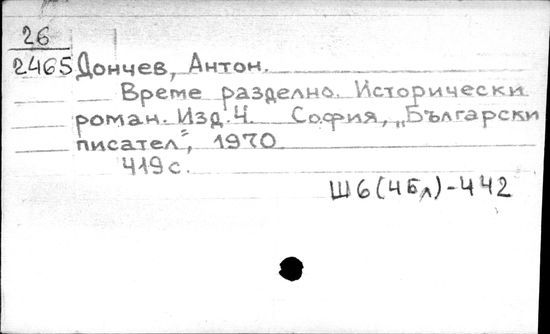 26
2465 Дончев, Антон.
Време разделно. Исторически
роман. Изд. 4. София, „Български
писател", 1970
419 с.
Ш6(4Бл)-442